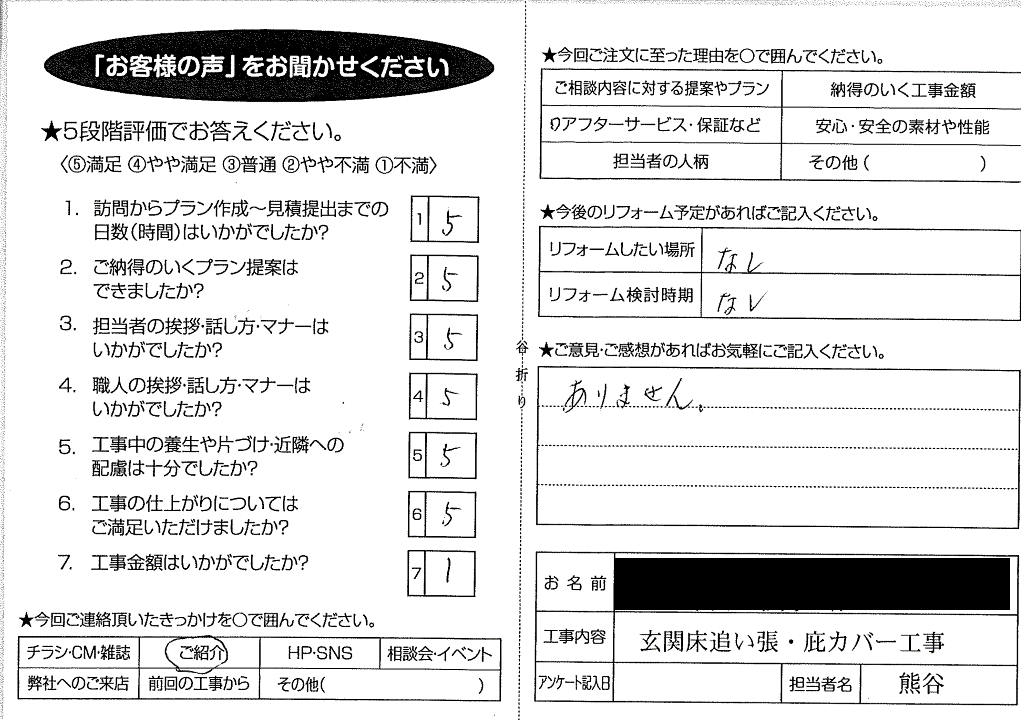 「お客様の声」をお聞かせください
★5段階評価でお答えください。
〈⑤満足 ④やや満足 ③普通 ②やや不満 ①不満〉
1. 訪問からプラン作成～見積提出までの
日数(時間)はいかがでしたか?
1 5
2. ご納得のいくプラン提案は
できましたか?
2 5
3. 担当者の挨拶・話し方・マナーは
いかがでしたか?
3 5
4. 職人の挨拶・話し方・マナーは
いかがでしたか?
4 5
5. 工事中の養生や片づけ・近隣への
配慮は十分でしたか?
5 5
6. 工事の仕上がりについては
ご満足いただけましたか?
6 5
7. 工事金額はいかがでしたか?
7 1
★今回ご連絡頂いたきっかけを○で囲んでください。
チラシ・CM・雑誌 ご紹介 HP・SNS 相談会・イベント
弊社へのご来店 前回の工事から その他( )
谷折り
★今回ご注文に至った理由を○で囲んでください。
ご相談内容に対する提案やプラン 納得のいく工事金額
アフターサービス・保証など 安心・安全の素材や性能
担当者の人柄 その他( )
★今後のリフォーム予定があればご記入ください。
リフォームしたい場所 なし
リフォーム検討時期 なし
★ご意見・ご感想があればお気軽にご記入ください。
ありません。
お名前
工事内容 玄関床追い張・庇カバー工事
アンケート記入日 担当者名 熊谷